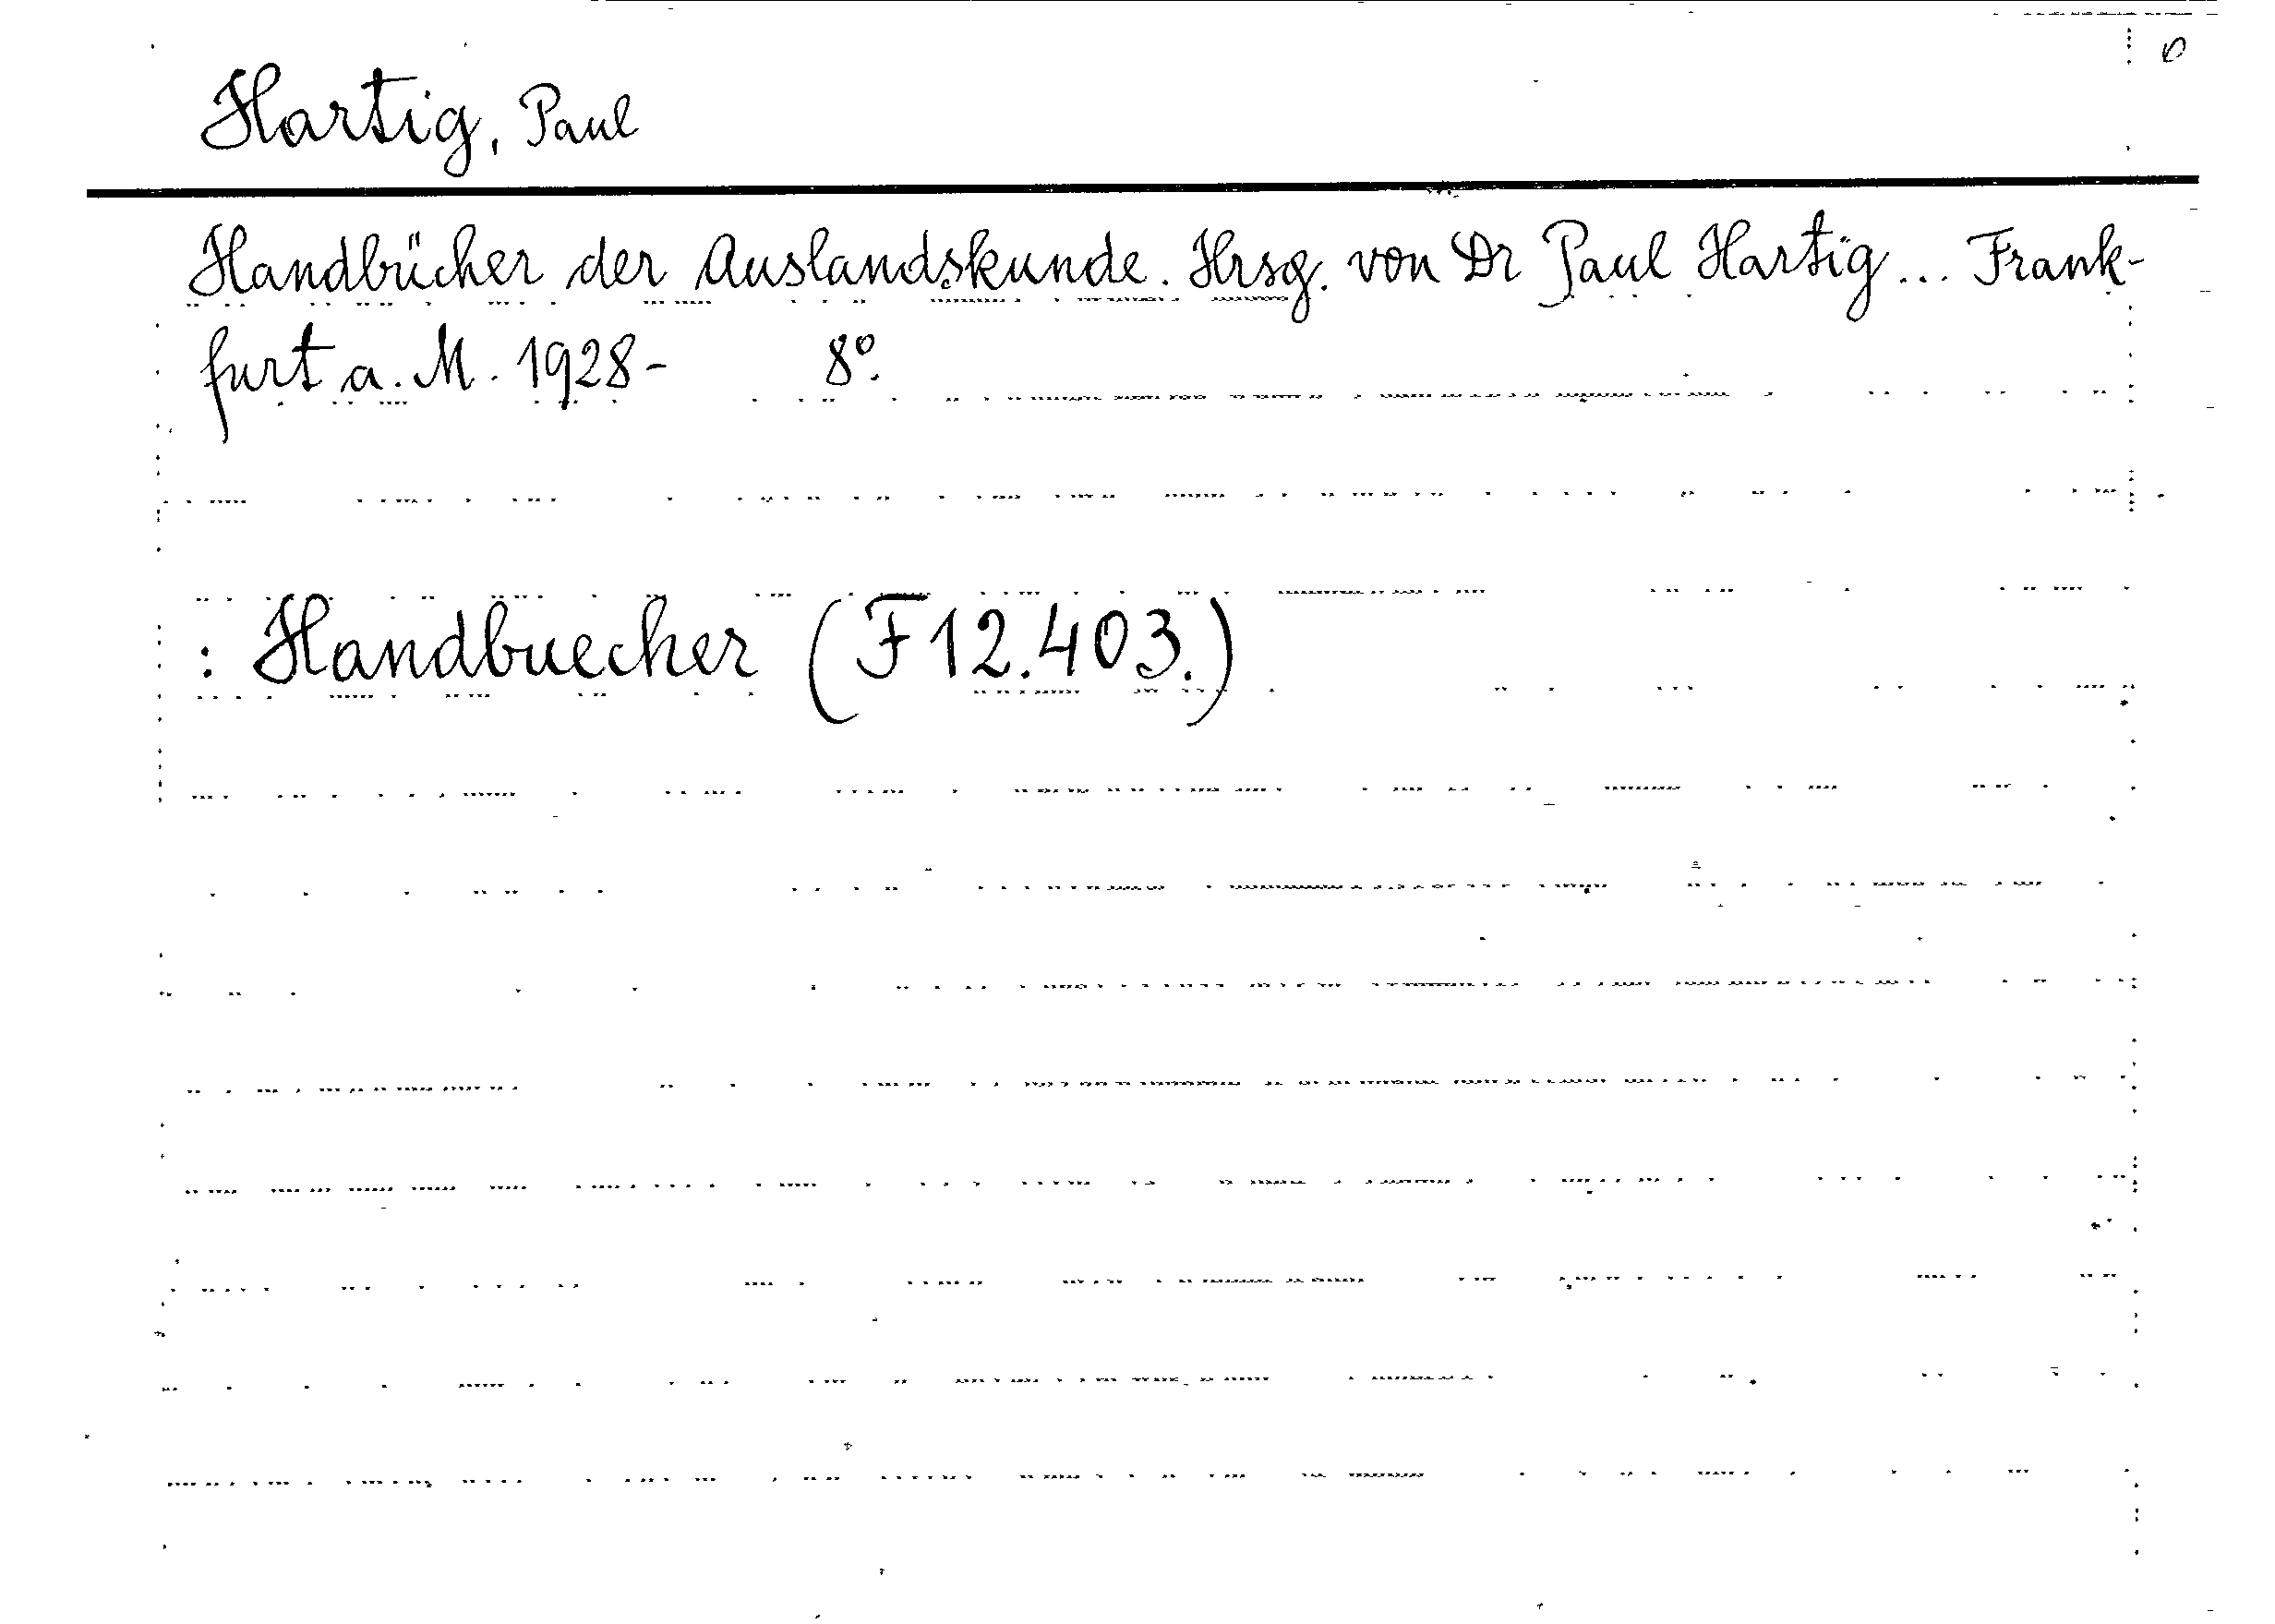 Hartig, Paul
Handbücher der Auslandskunde. Hrsg. von Dr Paul Hartig... Frank-
furt a. M. 1928- 8º.
: Handbuecher (F12.403.)